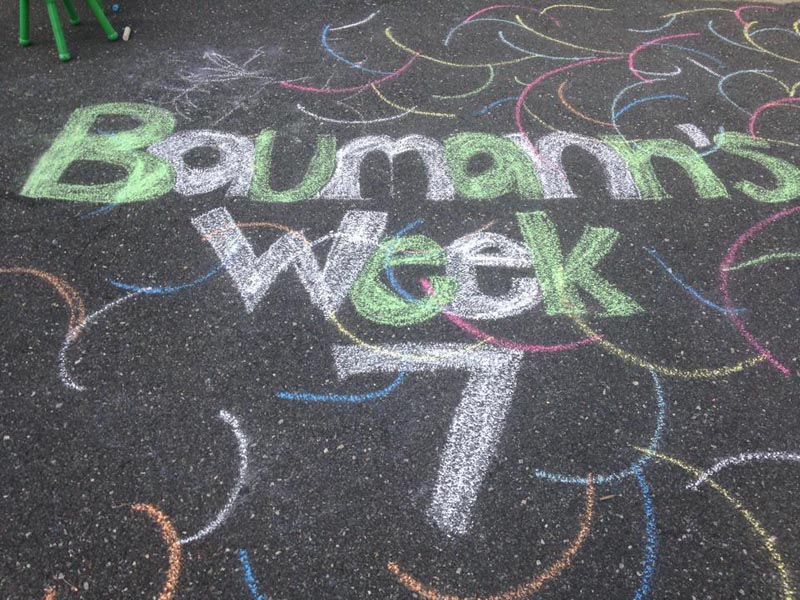 Baumann's
Week
7